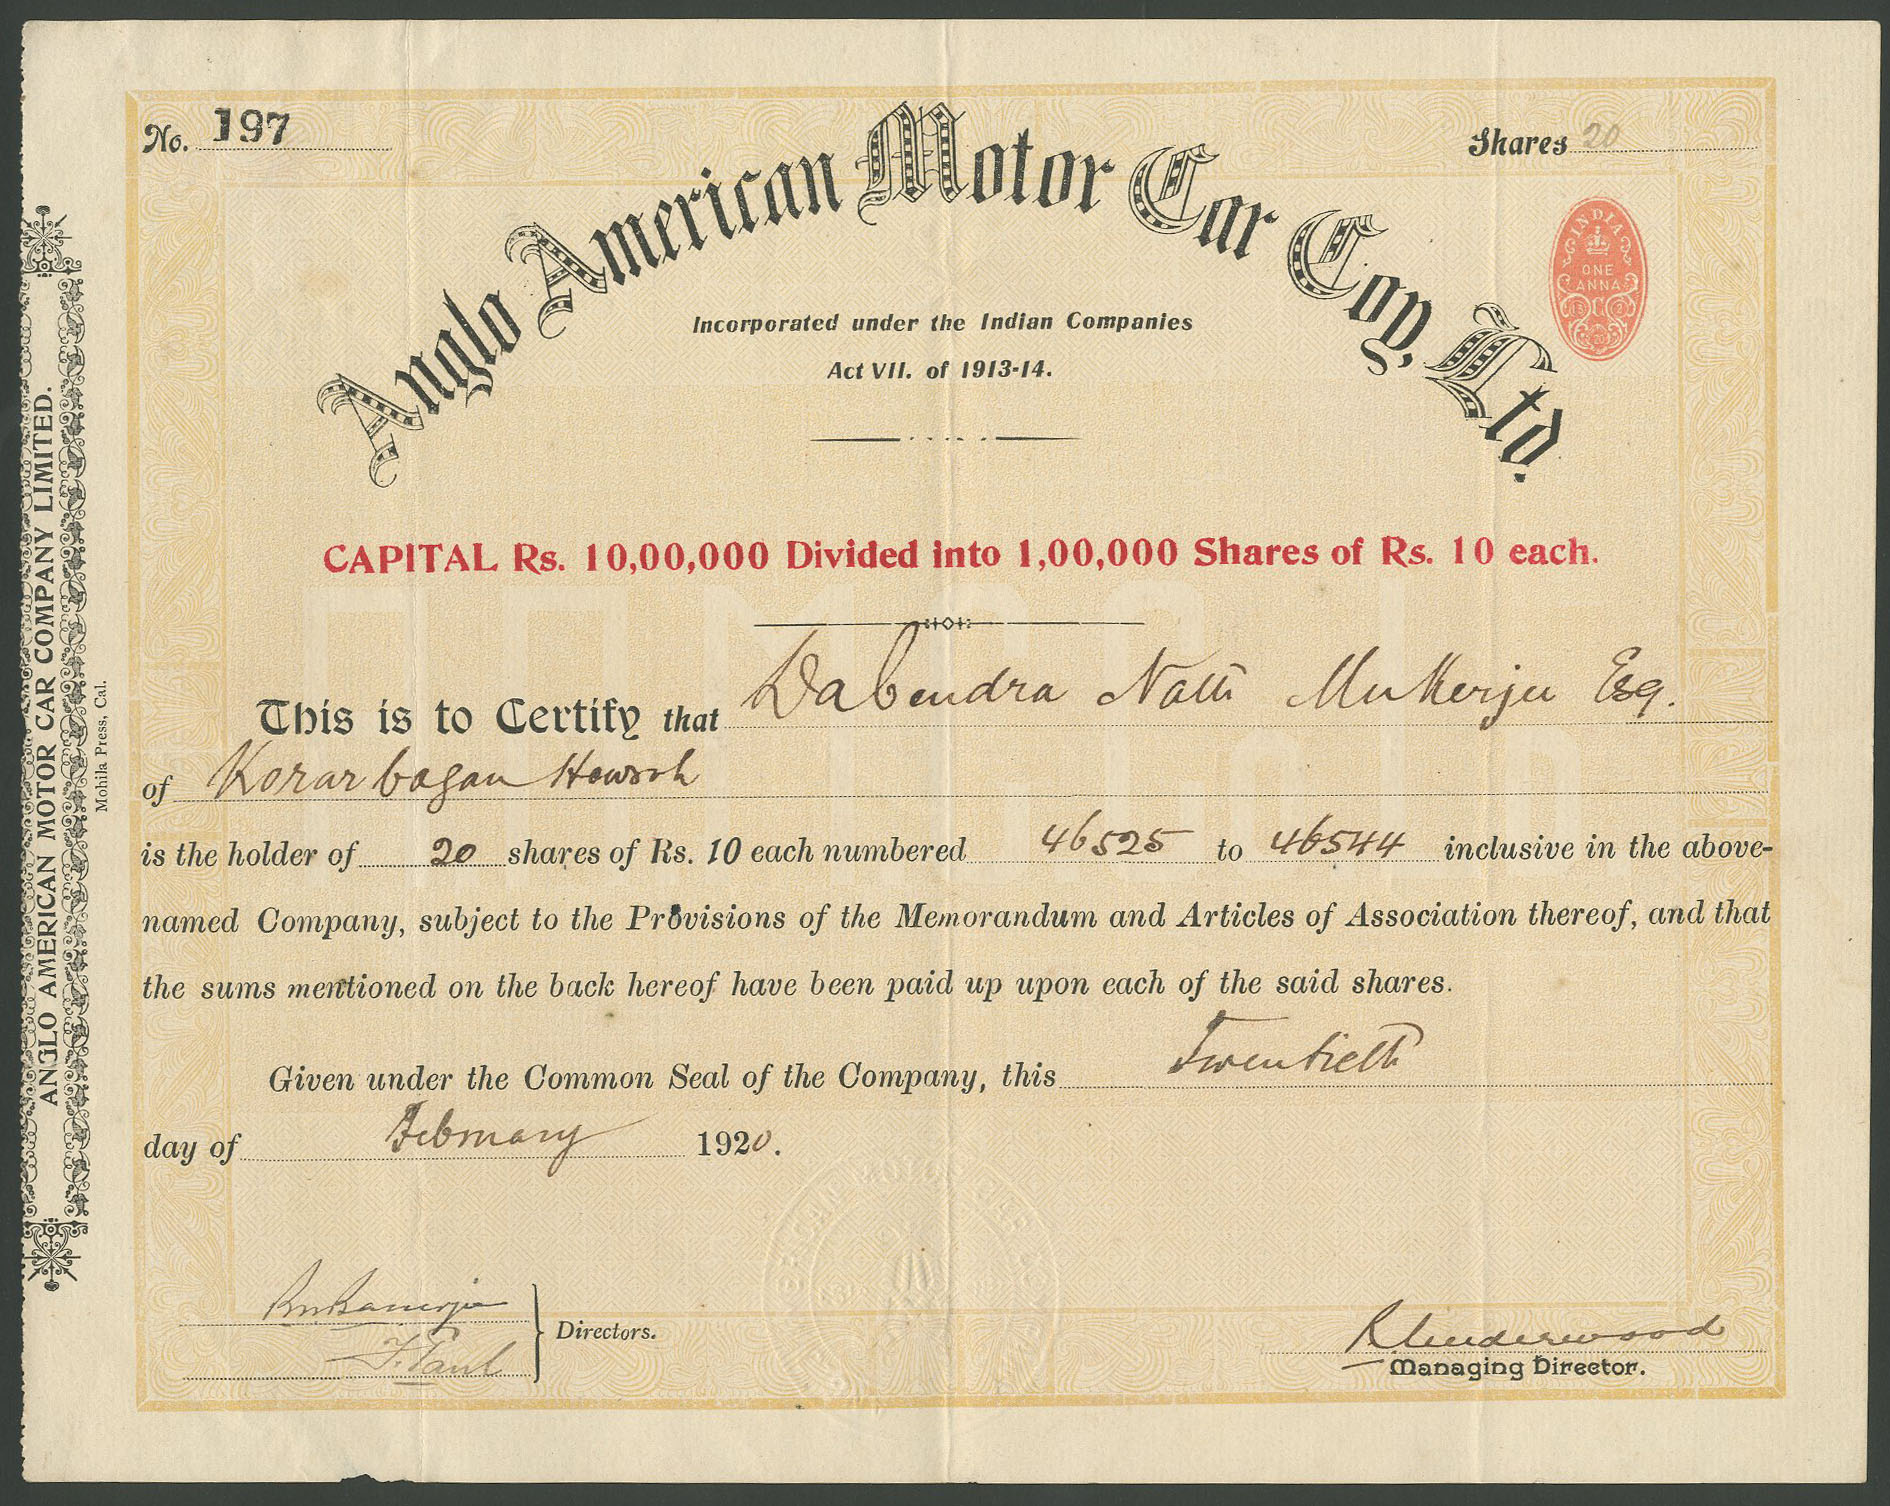 No. 197
Shares 20
Anglo American Motor Car Coy, Ltd.
INDIA
ONE
ANNA
Incorporated under the Indian Companies
Act VII. of 1913-14.
CAPITAL Rs. 10,00,000 Divided into 1,00,000 Shares of Rs. 10 each.
This is to Certify that Dabendra Nath Mukerjee Esq.
of Korarbagan Howrah
is the holder of 20 shares of Rs. 10 each numbered 46525 to 46544 inclusive in the above-
named Company, subject to the Provisions of the Memorandum and Articles of Association thereof, and that
the sums mentioned on the back hereof have been paid up upon each of the said shares.
Given under the Common Seal of the Company, this Twentieth
day of February 1920.
Directors.
Managing Director.
ANGLO AMERICAN MOTOR CAR COMPANY LIMITED.
Mohila Press, Cal.